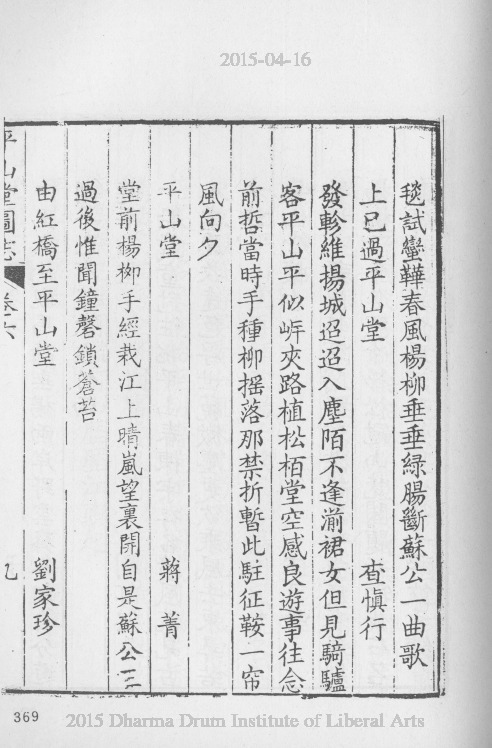 2015-04-16
毯試蠻鞾春風楊柳垂垂緑腸斷蘇公一曲歌
上巳過平山堂 查慎行
發軫維揚城迢迢入塵陌不逢湔裙女但見騎驢
客平山平似㟁夾路植松栢堂空感良遊事往念
前哲當時手種柳揺落那禁折暫此駐征鞍一帘
風向夕
平山堂 蔣菁
堂前楊栁手經栽江上晴嵐望裏開自是蘇公三
過後惟聞鐘磬鎖蒼苔
由紅橋至平山堂 劉家珍
平山堂圖志 卷六 九
369
2015 Dharma Drum Institute of Liberal Arts